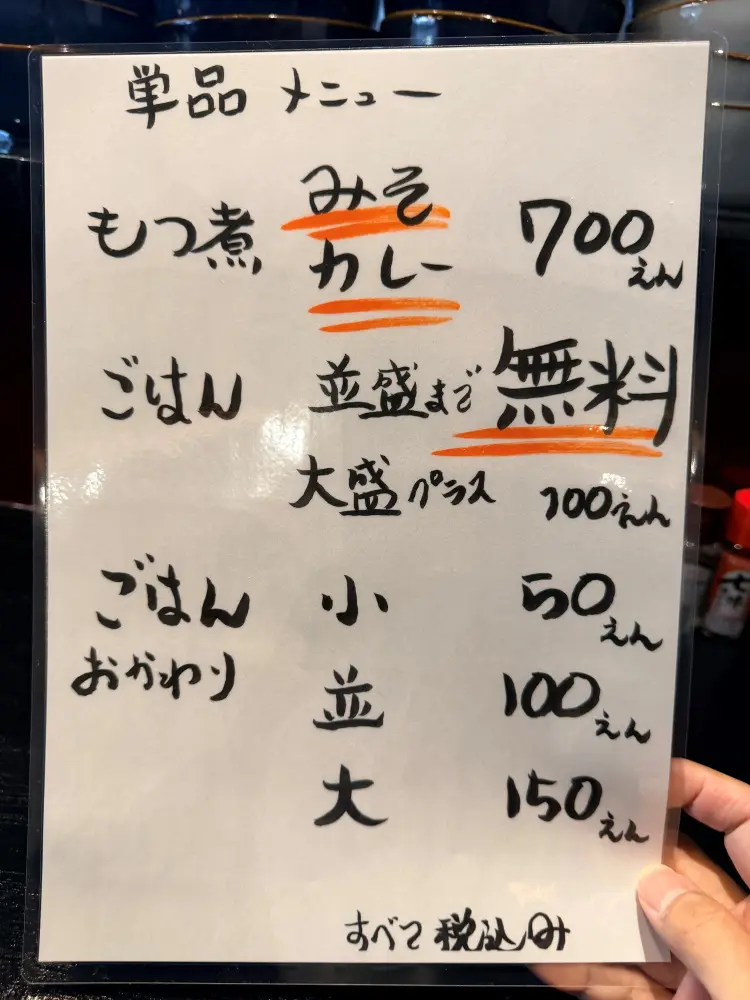 単品 メニュー
もつ煮 みそ 700えん
カレー
ごはん 並盛まで 無料
大盛 プラス 100えん
ごはん 小 50えん
おかわり
並 100えん
大 150えん
すべて税込み
七味